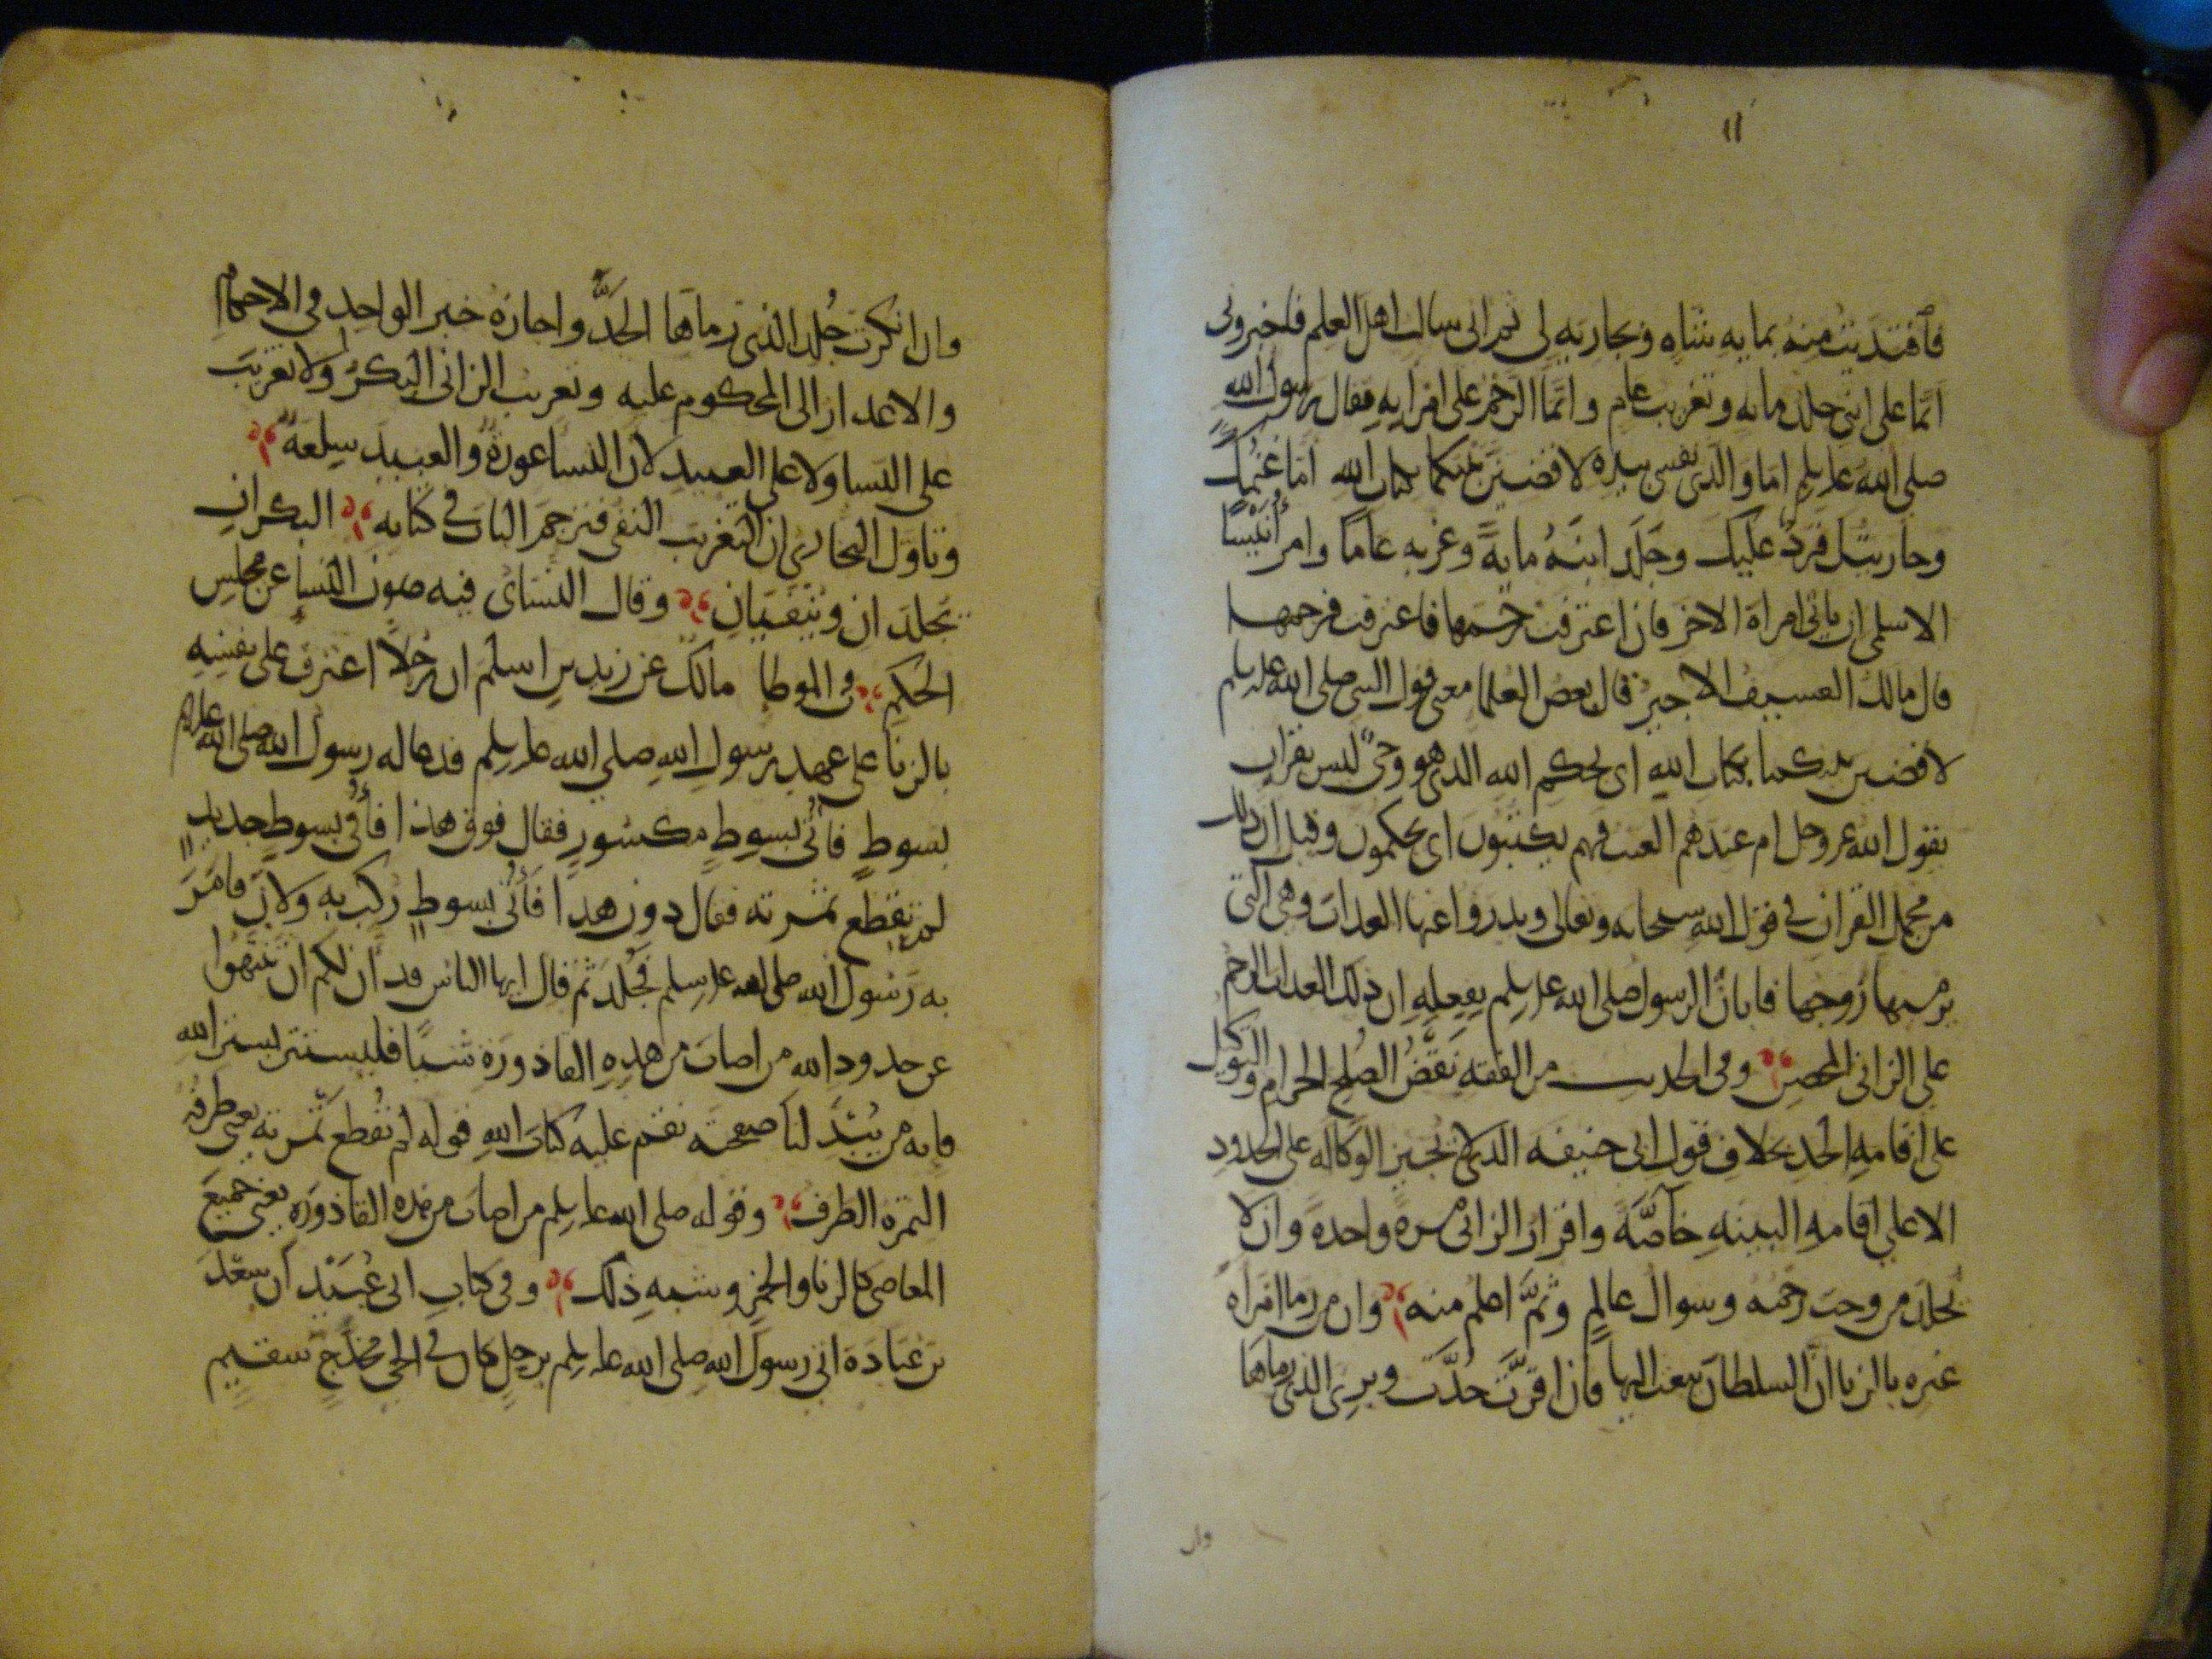 فافتديت منه بمايه شاه وبجاريه لى ثم انى سالت اهل العلم فاخبرونى
انما على ابنى جلد مايه وتغريب عام وانما الرجم على امراته فقال رسول الله
صلى الله عليه وسلم اما والذى نفسى بيده لاقضين بينكما بكتاب الله اما غنمك
وجاريتك فرد عليك وجلد ابنه مايةً وغربه عاما وامر أُنَيْسًا
الاسلمى ان ياتى امراة الاخر فان اعترفت رجمها فاعترفت فرجمها
قال مالك العسيف الاجير قال بعض العلما معنى قول النبى صلى الله عليه وسلم
لاقضين بينكما بكتاب الله اى بحكم الله الذى هو وحى ليس بقران
يقول الله عز وجل ام عندهم الغيب فهم يكتبون اى يحكمون وقيل ان ذلك
من مجمل القران فى قول الله سبحانه وتعالى ويدروا عنها العذاب وهى التى
يرميها زوجها فابان الرسول صلى الله عليه وسلم بفعله ان ذلك العذاب الرجم
على الزانى المحصن وفى الحديث من الفقه نقض الصلح الحرام والتوكيل
على اقامه الحد بخلاف قول ابى حنيفه الذى لا يجيز الوكاله على الحدود
الا على اقامه البينه خاصَّة واقرار الزانى مره واحده وان لا
يجلد من وجب رجمه وسوال عالم وثَمَّ اعلم منه وان من رما امراه
غيره بالزنا ان السلطان يبعث اليها فان اقرَّت حُدَّت وبرى الذى رماها
وان
وان انكرت جُلد الذى رماها الحدَّ واجازة خبر الواحد فى الاحكام
والاعذار الى المحكوم عليه وتغريب الزانى البكر ولا تغريب
على النسا ولا على العبيد لان النسا عورة والعبيد سلعة
وتاول البخارى ان التغريب النفى فترجم الباب فى كتابه البكران
يجلدان وينفيان وقال النساى فيه صون النسا عن مجلس
الحكم وفى الموطا مالك عن زيد بن اسلم ان رجلا اعترف على نفسه
بالزنا على عهد رسول الله صلى الله عليه وسلم فدعا له رسول الله صلى الله عليه وسلم
بسوط فأُتى بسوطٍ مكسورٍ فقال فوق هذا فأُتى بسوطٍ جديدٍ
لم تقطع ثمرته فقال دون هذا فأُتى بسوطٍ رُكب به ولان فامر
به رسول الله صلى الله عليه وسلم فجُلد ثم قال ايها الناس قد ان لكم ان تنتهوا
عن حدود الله من اصاب من هذه القاذورة شيًا فليستتر بستر الله
فانه من يُبْدِ لنا صفحته نقم عليه كتاب الله قوله لم تُقطع ثمرته يعنى طرفه
الثمرة الطرف وقوله صلى الله عليه وسلم من اصاب من هذه القاذوره يعنى جميع
المعاصى كالزنا والخمر وشبه ذلك وفى كتاب ابى عُبَيْد ان سعد
بن عُبَادَة اتى رسول الله صلى الله عليه وسلم برجل كان فى الحى مخدج سقيم